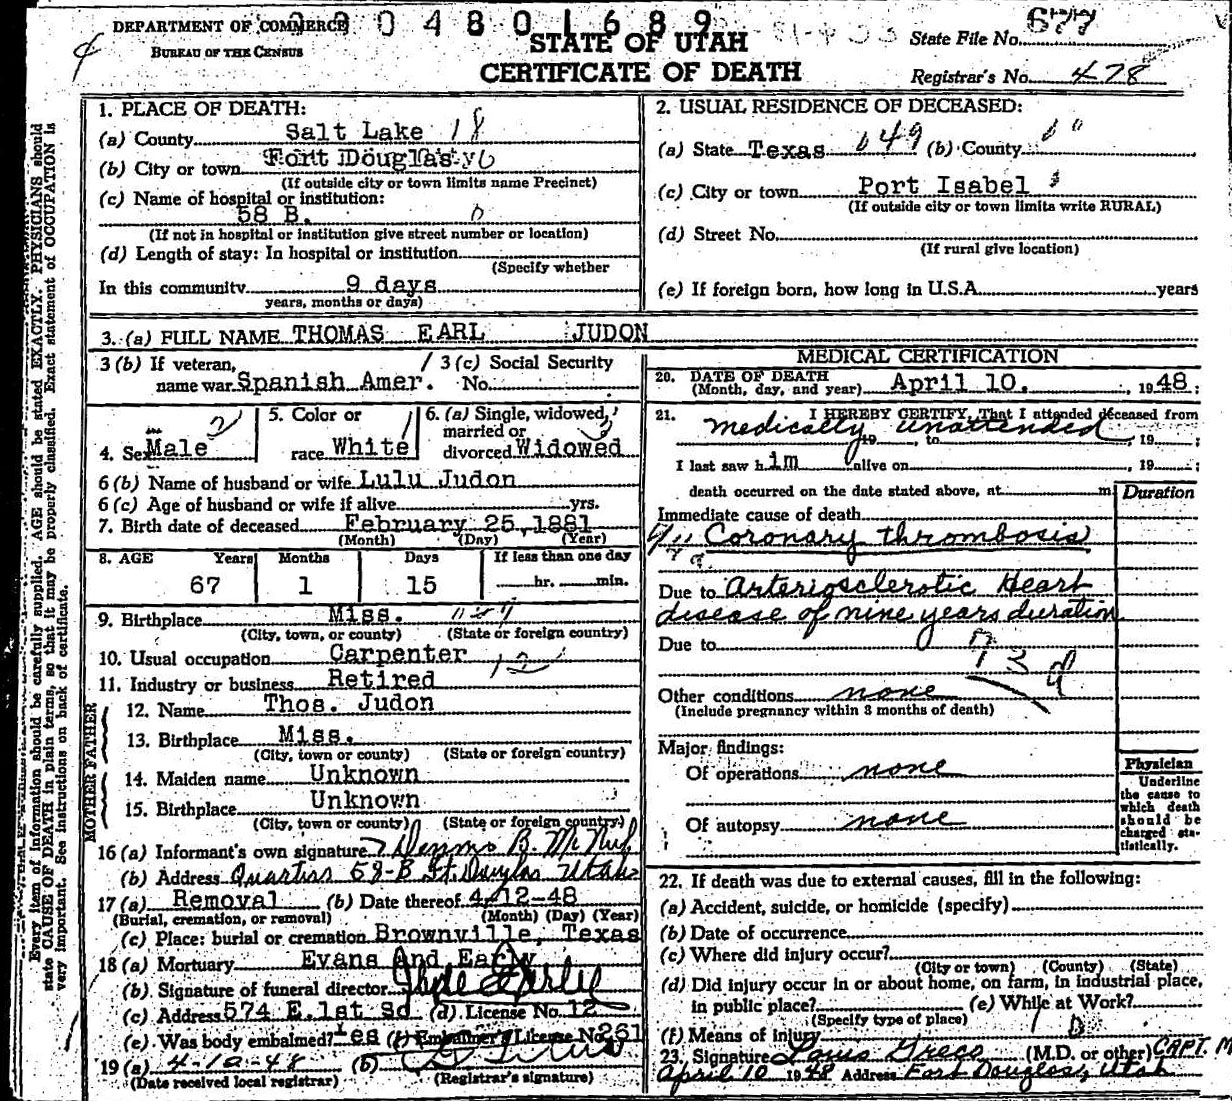 DEPARTMENT OF COMMERCE
BUREAU OF THE CENSUS
4 8 0 1 6 8 9
STATE OF UTAH
CERTIFICATE OF DEATH
State File No. 677
Registrar's No. 478
Every item of information should be carefully supplied. AGE should be stated EXACTLY. PHYSICIANS should
state CAUSE OF DEATH in plain terms, so that it may be properly classified. Exact statement of OCCUPATION is
very important. See instructions on back of certificate.
1. PLACE OF DEATH:
(a) County Salt Lake 18
(b) City or town Fort Douglas
(If outside city or town limits name Precinct)
(c) Name of hospital or institution:
58 B.
(If not in hospital or institution give street number or location)
(d) Length of stay: In hospital or institution
(Specify whether
In this community 9 days
years, months or days)
2. USUAL RESIDENCE OF DECEASED:
(a) State Texas 649 (b) County
(c) City or town Port Isabel
(If outside city or town limits write RURAL)
(d) Street No.
(If rural give location)
(e) If foreign born, how long in U.S.A. years
3. (a) FULL NAME THOMAS EARL JUDON
3 (b) If veteran,
name war Spanish Amer.
3 (c) Social Security
No.
4. Sex Male
5. Color or
race White
6. (a) Single, widowed,
married or
divorced Widowed
6 (b) Name of husband or wife Lulu Judon
6 (c) Age of husband or wife if alive yrs.
7. Birth date of deceased February 25, 1881
(Month) (Day) (Year)
8. AGE Years Months Days If less than one day
67 1 15 hr. min.
9. Birthplace Miss.
(City, town, or county) (State or foreign country)
10. Usual occupation Carpenter
11. Industry or business Retired
FATHER
12. Name Thos. Judon
13. Birthplace Miss.
(City, town or county) (State or foreign country)
MOTHER
14. Maiden name Unknown
15. Birthplace Unknown
(City, town or county) (State or foreign country)
16 (a) Informant's own signature Dennis B. McNul
(b) Address Quarters 58-B Ft. Douglas Utah
17 (a) Removal (b) Date thereof 4-12-48
(Burial, cremation, or removal) (Month) (Day) (Year)
(c) Place: burial or cremation Brownville, Texas
18 (a) Mortuary Evans and Early
(b) Signature of funeral director
(c) Address 574 E. 1st So (d) License No. 12
(e) Was body embalmed? Yes (f) Embalmer's License No 261
19 (a) 4-12-48 (b)
(Date received local registrar) (Registrar's signature)
MEDICAL CERTIFICATION
20. DATE OF DEATH
(Month, day, and year) April 10. , 1948;
21. I HEREBY CERTIFY, That I attended deceased from
medically unattended
19 , to , 19 ;
I last saw him alive on , 19 ;
death occurred on the date stated above, at m
Duration
Immediate cause of death
Coronary thrombosis
Due to Arteriosclerotic Heart
disease of nine years duration
Due to
Other conditions none
(Include pregnancy within 3 months of death)
Major findings:
Of operations none
Of autopsy none
Physician
Underline
the cause to
which death
should be
charged sta-
tistically.
22. If death was due to external causes, fill in the following:
(a) Accident, suicide, or homicide (specify)
(b) Date of occurrence
(c) Where did injury occur?
(City or town) (County) (State)
(d) Did injury occur in or about home, on farm, in industrial place,
in public place? (e) While at Work?
(Specify type of place)
(f) Means of injury
23. Signature Louis Greco (M.D. or other) CAPT. M
April 10 1948 Address Fort Douglas, Utah